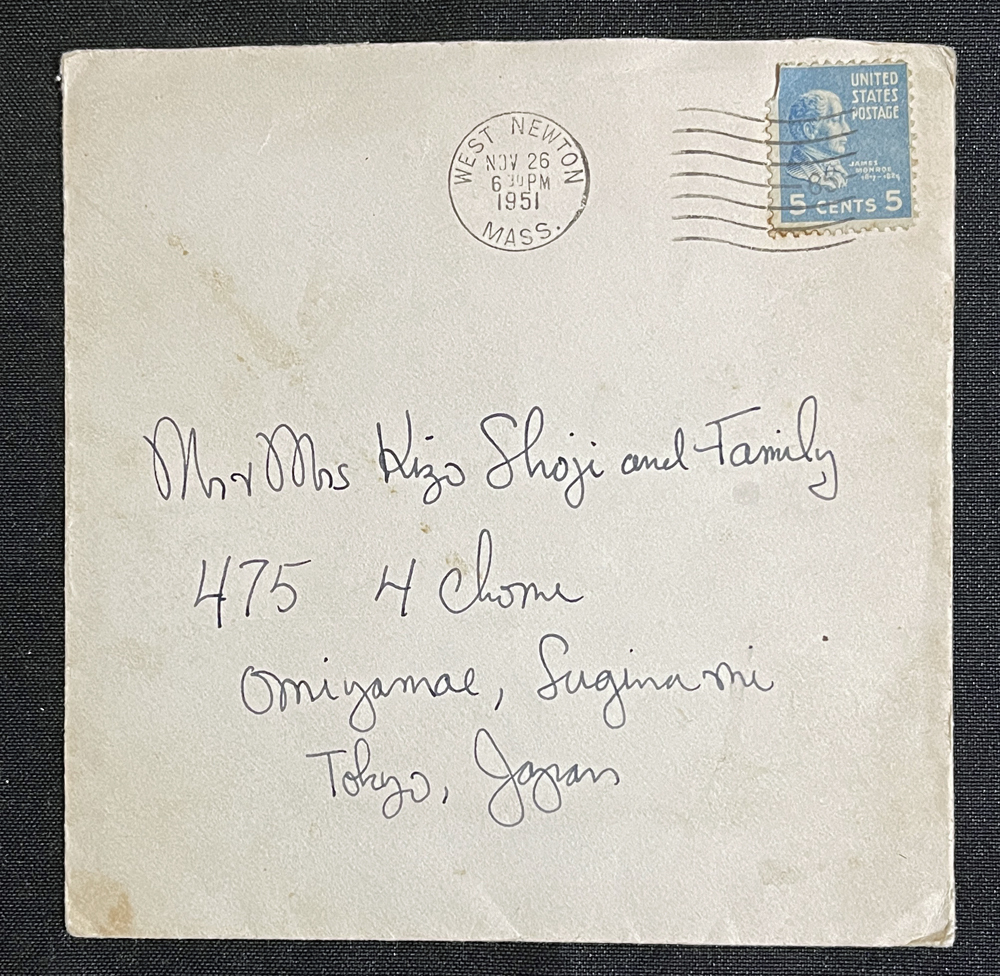 WEST NEWTON
NOV 26
6 30 PM
1951
MASS.
UNITED
STATES
POSTAGE
JAMES
MONROE
5 CENTS 5
Mr & Mrs Kizo Shoji and Family
475 4 Chome
Omiyamae, Suginami
Tokyo, Japan